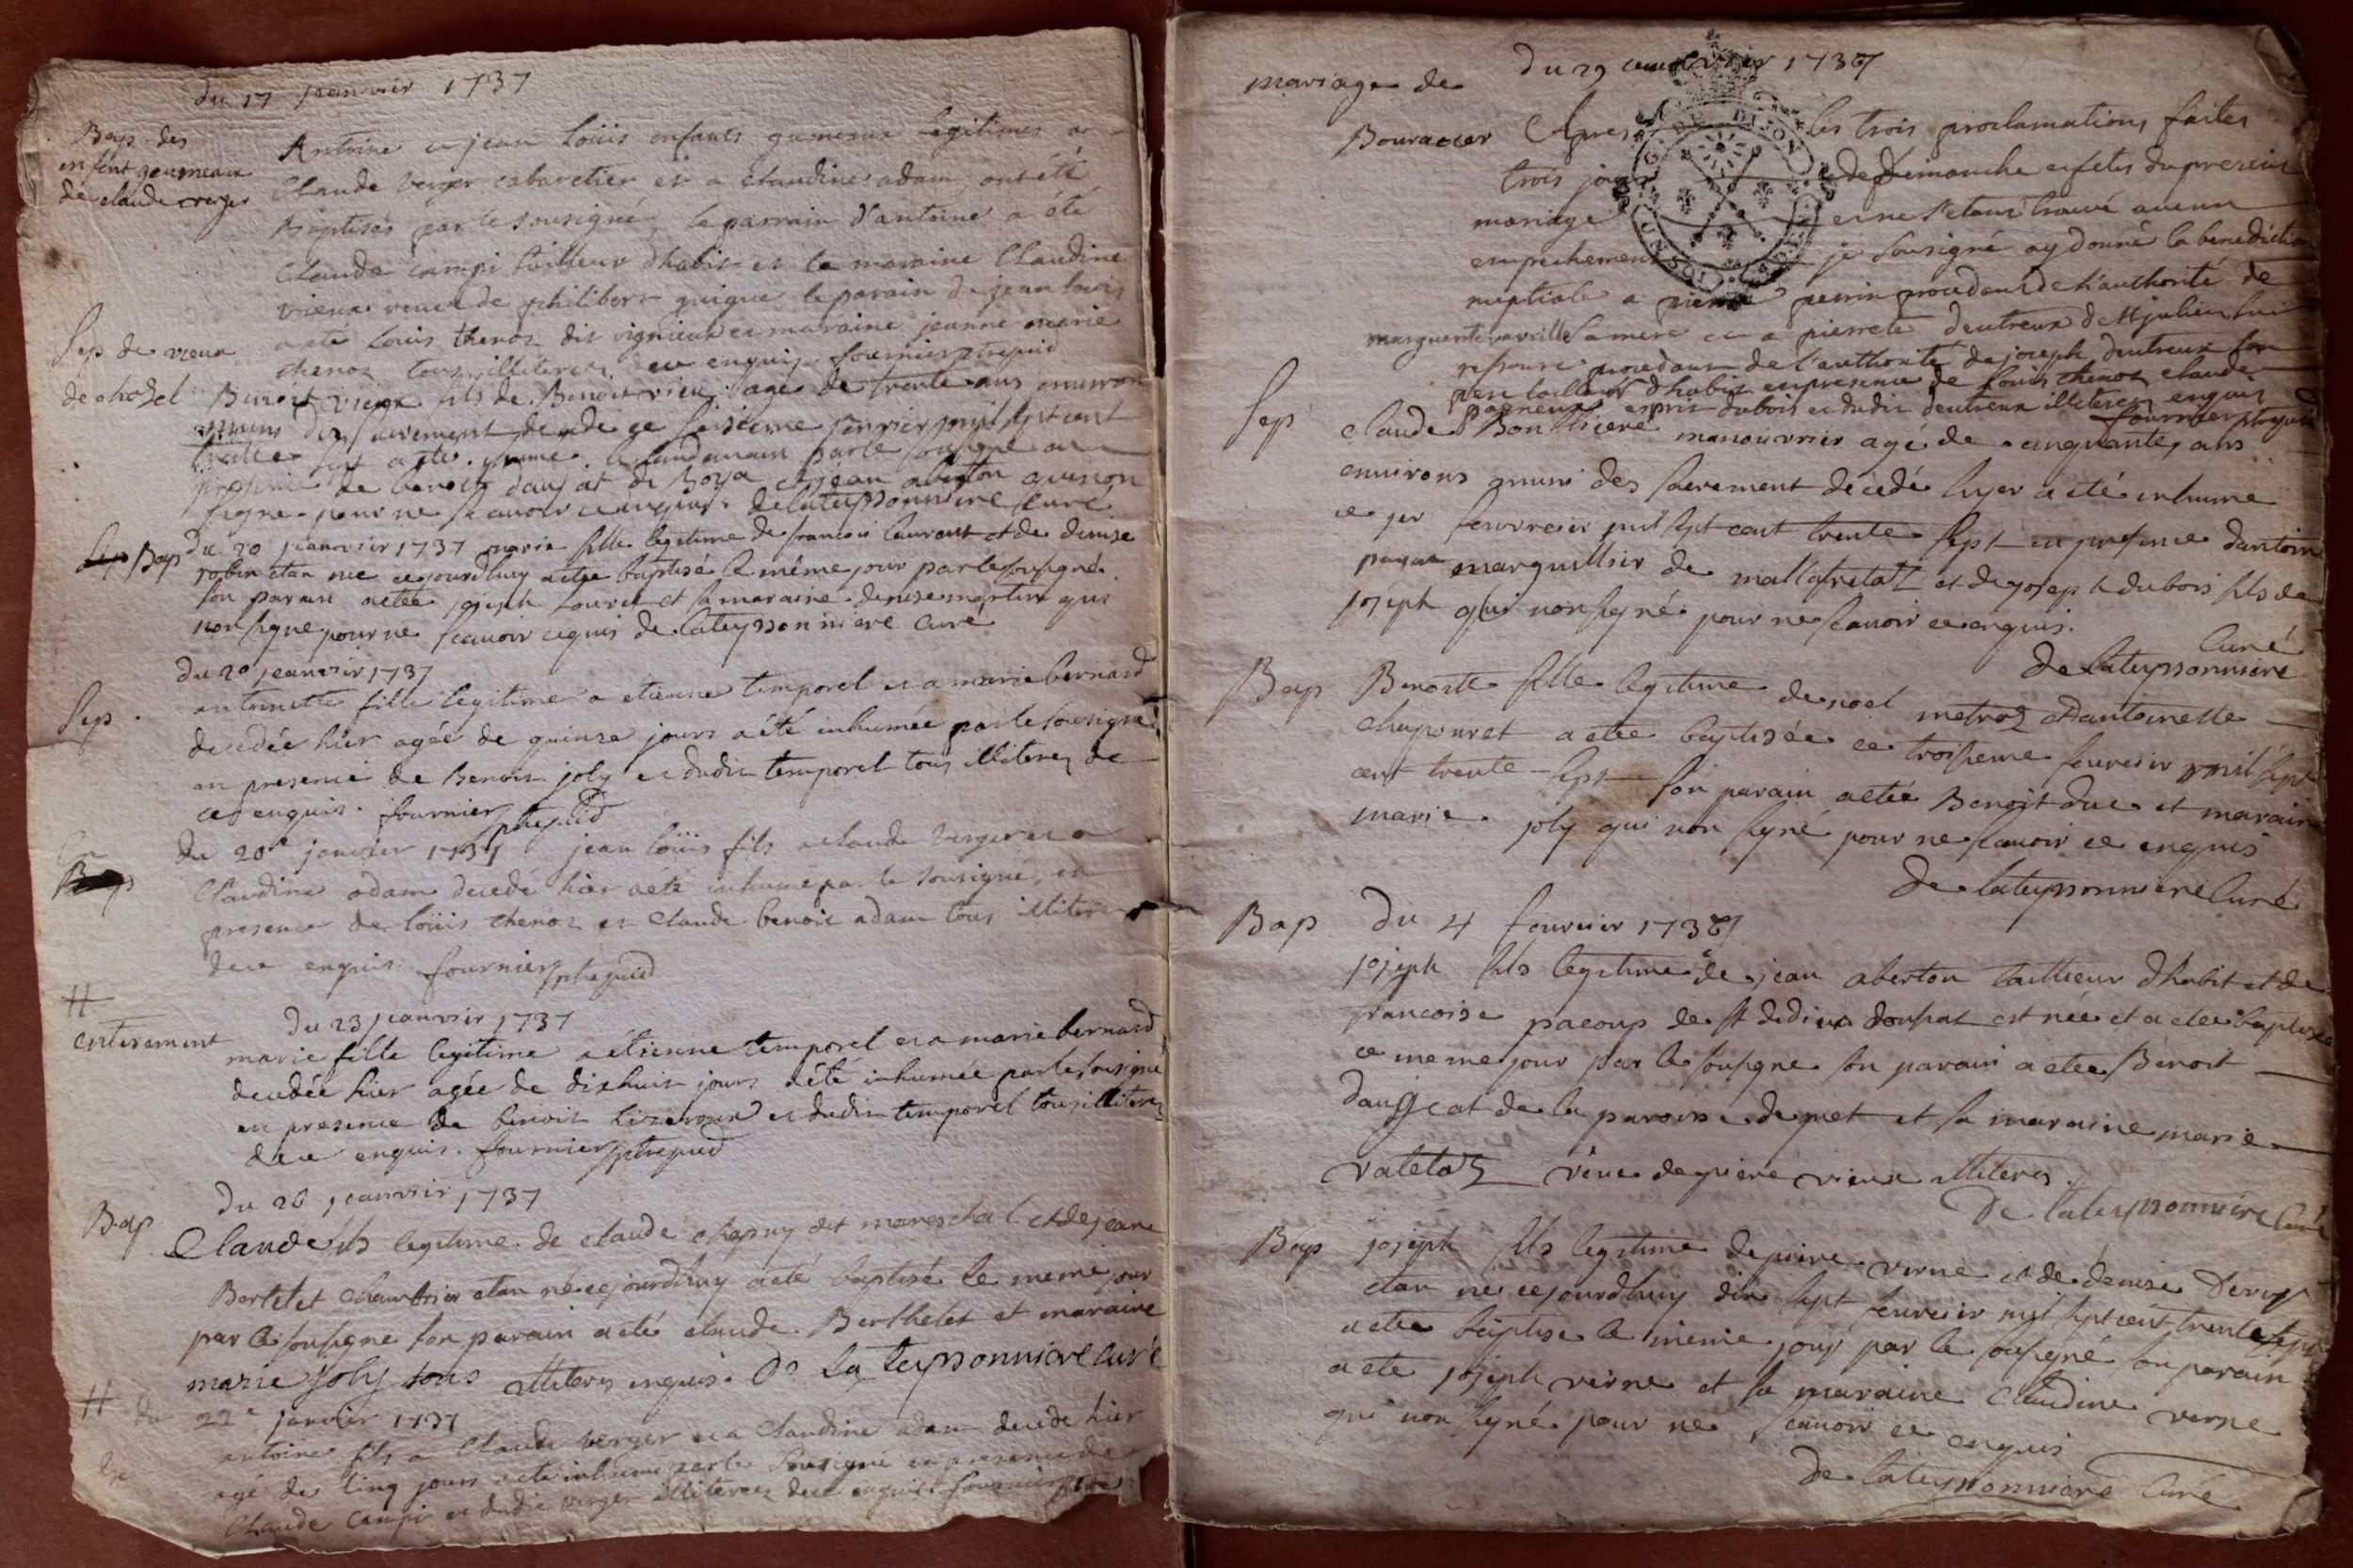 du 17 jeanvier 1737
Bap des
enfent goumeaux
de claude verger
Antoine et jean Loüis enfants gumeaux legitimes a
Claude verger cabaretier et a claudine adam, ont été
Baptisés par le sousigné, le parrain d'antoine a été
Claude campi tailleur dhabit et la maraine Claudine
vieux veuve de philibert guigue le parain de jean louis
a été Louis thenoz dit vignieux et maraine jeanne marie
thenoz tous illiteres de ce enquis fournier
Sep de vieux
Benoit vieux fils de Benoit vieux age de trente ans environ
munis des sacrement decede ce seisieme janvier mil sept cent
trente sept a ete inhumé le landemain par le sousigné en
presence de benoit daujat et jean aberton qui non
signe pour ne scavoir ce enquis. De lateyssonniere curé
Bap
du 20 jeanvier 1737 marie fille legitime de francois laurent et de denise
robin etan nee ce jourdhuy a etee baptisé le même jour par le sousigné.
son parain a etee joseph et sa maraine denise martin qui
non signe pour ne scavoir ce enquis de lateyssonniere curé
du 20 jeanvier 1737
Sep.
antoinette fille legitime a etienne temporel et a marie bernard
decedée hier agée de quinse jours a été inhumée par le sousigné
en presence de Benoit joly et dudit temporel tous illiteres de
ce enquis. fournier
du 20e janvier 1737 jean loüis fils a claude verger et a
Claudine adam decedé hier a été inhumé par le sousigné, en
presence de loüis thenoz et claude benoit adam tous illiteres
de ce enquis. fournier
H
enterement
du 23 jeanvier 1737
marie fille legitime a etienne temporel et a marie bernard
decedée hier agée de dixhuit jours a été inhumée par le sousigné
en presence de benoit et dudit temporel tous illiteres
de ce enquis. fournier
du 26 jeanvier 1737
Bap
Claude fils legitime de claude chapuy dit mareschal et de jeane
Bertelet etan né ce jourdhuy a eté baptisé le meme jour
par le sousigne son parain a eté claude Berthelet et maraine
marie joly tous illiteres enquis. De La teyssonniere curé
H
du 22e janvier 1737
antoine fils a Claude verger et a Claudine adam decede hier
agé de cinq jours a ete inhumé par le sousigné en presence de
Claude Campi et dudit verger illiteres de ce enquis fournier
mariage de
du 29 1737
Apres les trois proclamations faites
trois jours de Dimanche et fetes du present
mariage et ne s'etant trouvé aucun
empechement je sousigné ay donné la benediction
nuptiale a pierre perrin procedant de l'authorité de
marguerite sa mere et a pierrete dentreux de st julien
procedant de l'authorité de joseph dentreux son
pere tailleur dhabit en presence de Louis thenoz claude
esprit dubois et dudit dentreux illiteres enquis
fournier
Sep
claude manouvrier agé de cinquante ans
environs muni des sacrement decedé hyer a eté inhumé
ce 1er feuvreier mil sept cent trente sept en presence dantoine
marguillier de et de joseph dubois fils de
joseph qui non signé pour ne scavoir ce enquis.
Curé
De lateyssonniere
Bap
Benoite fille legitime de noel metroz et dantoinette
chaponret a etee baptisée ce troisieme feuvreier mil sept
cent trente sept son parain a etee Benoit duc et maraine
marie joly qui non signé pour ne scavoir ce enquis
De lateyssonniere Curé
Bap
du 4 feuvreier 1737
joseph fils legitime de jean aberton tailleur dhabit et de
francoise pacoup de st didier est née et a etee baptisé
ce meme jour par le sousigne son parain a etee Benoit
daujeat de la paroisse et sa maraine marie
vatelaz veuve de piere vieux illiteres.
De lateyssonniere Curé
Bap
joseph fils legitime de piere verne et de denise
etan né ce jourdhuy dix sept feuvreier mil sept cent trente sept
a etee baptise le même jour par le sousigné son parain
a ete joseph verne et sa maraine claudine verne
qui non signé pour ne scavoir ce enquis
De lateyssonniere Curé